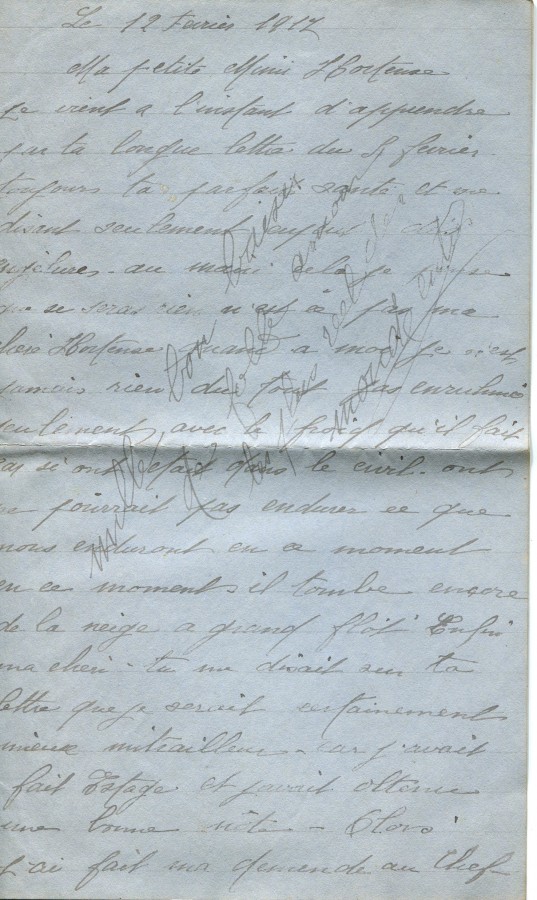 Le 12 Fevrier 1917
Ma petite Mimi Hortense
Je vient a l'instant d'apprendre
par ta longue lettre du 5 fevrier
toujours ta parfaite santé et me
disant seulement
engelures au main cela je pense
que se seras rien n'est ce pas ma
chere Hortense quand a moi je n'est
jamais rien du tout pas enrhumé
seulement avec le froid qu'il fait
car si ont etait dans le civil ont
ne pourrait pas endurer ce que
nous enduront en ce moment
en ce moment il tombe encore
de la neige a grand flot Enfin
ma cheri tu me disait sur ta
lettre que je serait certainement
mieux mitrailleur car j'avait
fait Estage et javait obtenu
une bonne note
J'ai fait ma demande au Chef
mille bon baiser